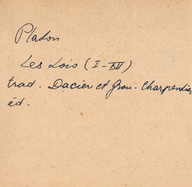 Platon
Les Lois (I-XII)
trad. Dacier et Grou. Charpentier
éd.